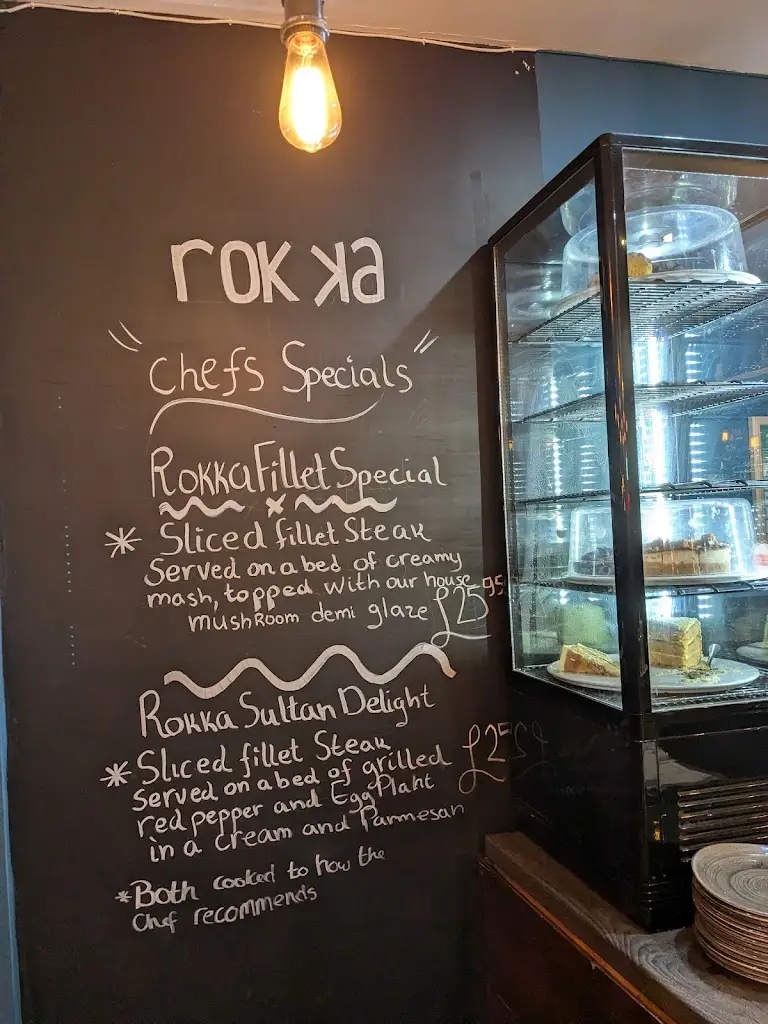 rokka
"Chefs Specials"
Rokka Fillet Special
* Sliced fillet Steak
Served on a bed of creamy
mash, topped with our house
mushRoom demi glaze £25.95
Rokka Sultan Delight
* Sliced fillet Steak
Served on a bed of grilled
red pepper and Egg Plant
in a cream and Parmesan
*Both cooked to how the
Chef recommends